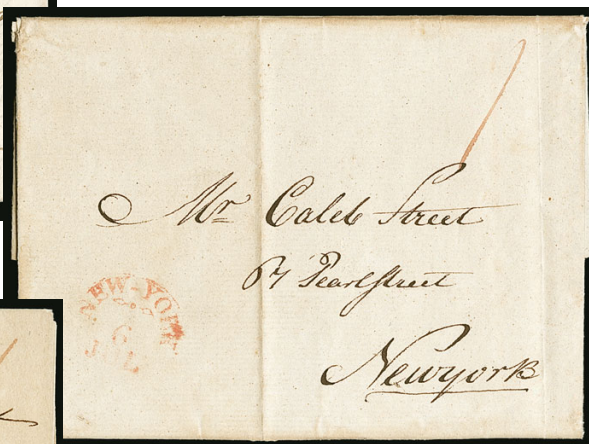 1
Mr Caleb Street
67 Pearl Street
Newyork
NEW-YORK
6